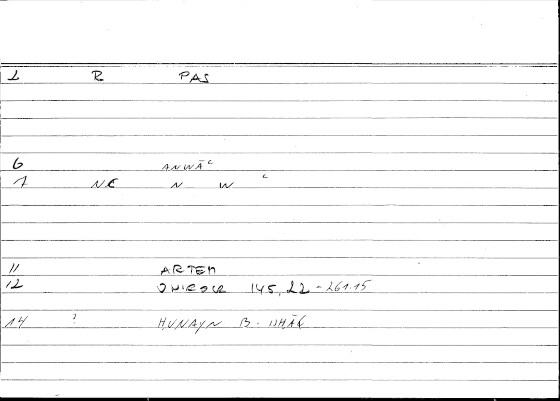 1 R PAS
6 ANWĀᶜ
7 NE N W ᶜ
11 ARTEM
12 ONIROCR 145,22-261.15
14 ? HUNAYN B. ISHĀQ